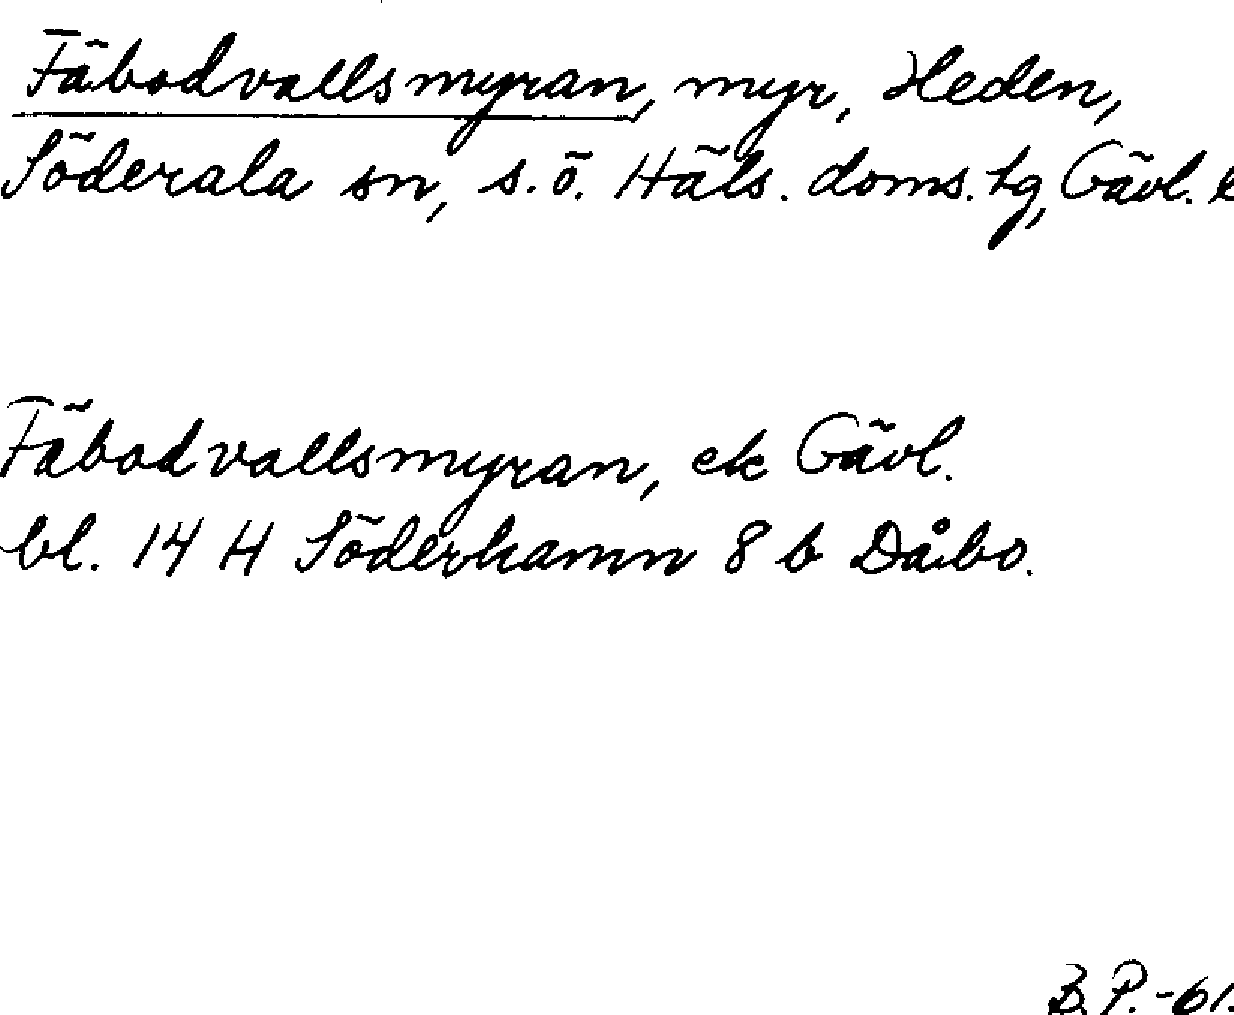 Fäbodvallsmyran, myr, Heden,
Söderala sn, s.ö. Häls. doms.tg, Gävl. l
Fäbodvallsmyran, ek Gävl.
bl. 14 H Söderhamn 8 b Dåbo.
B.P.-61.